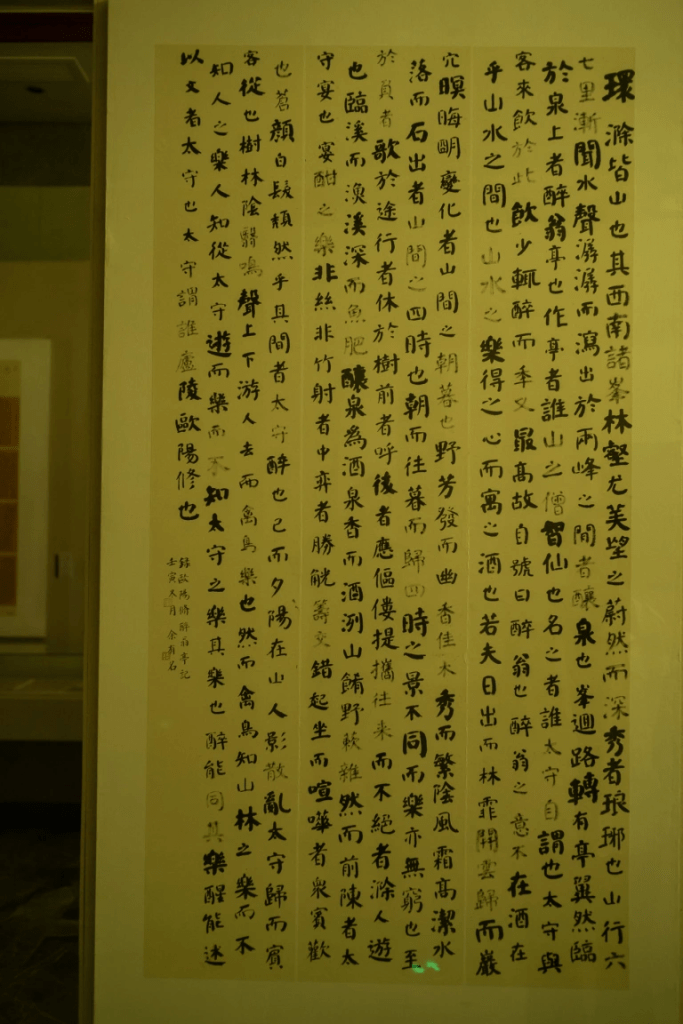 環滁皆山也其西南諸峯林壑尤美望之蔚然而深秀者琅琊也山行六
七里漸聞水聲潺潺而瀉出於兩峰之間者釀泉也峯迴路轉有亭翼然臨
於泉上者醉翁亭也作亭者誰山之僧智仙也名之者誰太守自謂也太守與
客來飲於此飲少輒醉而年又最高故自號曰醉翁也醉翁之意不在酒在
乎山水之間也山水之樂得之心而寓之酒也若夫日出而林霏開雲歸而巖
穴暝晦明變化者山間之朝暮也野芳發而幽香佳木秀而繁陰風霜高潔水
落而石出者山間之四時也朝而往暮而歸四時之景不同而樂亦無窮也至
於負者歌於途行者休於樹前者呼後者應傴僂提攜往來而不絕者滁人遊
也臨溪而漁溪深而魚肥釀泉為酒泉香而酒洌山餚野蔌雜然而前陳者太
守宴也宴酣之樂非絲非竹射者中弈者勝觥籌交錯起坐而喧嘩者衆賓歡
也蒼顏白髮頹然乎其間者太守醉也已而夕陽在山人影散亂太守歸而賓
客從也樹林陰翳鳴聲上下游人去而禽鳥樂也然而禽鳥知山林之樂而不
知人之樂人知從太守遊而樂而不知太守之樂其樂也醉能同其樂醒能述
以文者太守也太守謂誰廬陵歐陽修也
錄歐陽脩醉翁亭記
壬寅冬月 余